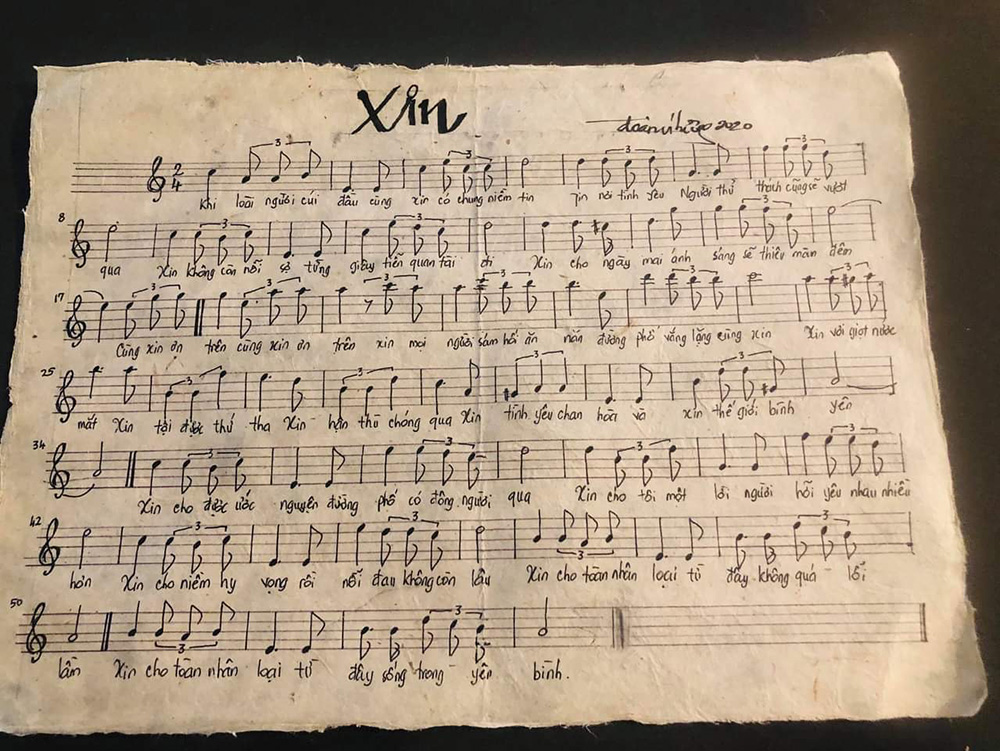 Xin
2020
2
4
3 3 3 3
khi loài người cúi đầu cùng xin có chung niềm tin Tin nơi tình yêu Người thử thách cũng sẽ vượt
8
3 3 3
qua Xin không còn nỗi sợ từng giây tiễn quan tài đi Xin cho ngày mai ánh sáng sẽ thiêu màn đêm
17
3 3 3 3 3 3
Cùng xin ơn trên cùng xin ơn trên xin mọi người sám hối ăn năn đường phố vắng lặng cũng xin Xin với giọt nước
25
3 3 3 3
mắt Xin tội được thứ tha Xin hận thù chóng qua Xin tình yêu chan hòa và xin thế giới bình yên
34
3 3 3 3
Xin cho được ước nguyện đường phố có đông người qua Xin cho tôi một lời người hỡi yêu nhau nhiều
42
3 3 3 3
hơn Xin cho niềm hy vọng rồi nỗi đau không còn lâu Xin cho toàn nhân loại từ đây không quá lỗi
50
3 3
lầm Xin cho toàn nhân loại từ đây sống trong yên bình.